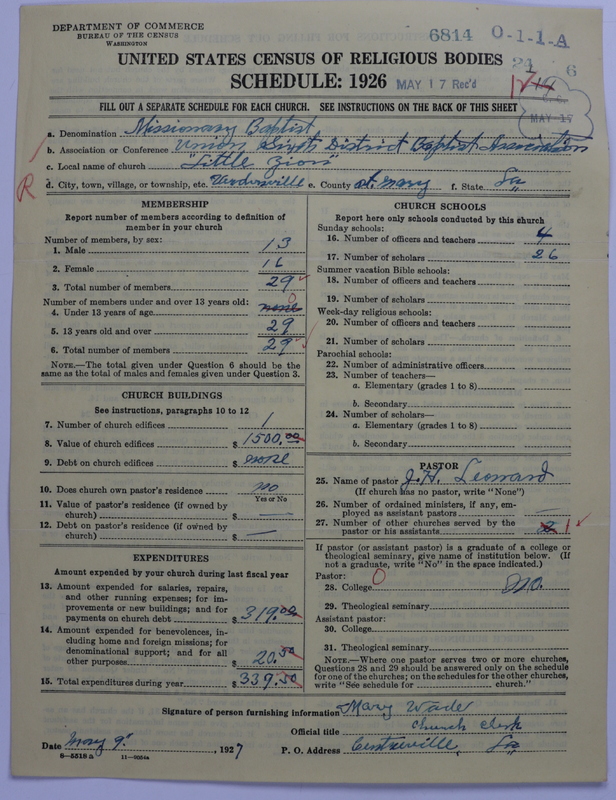 DEPARTMENT OF COMMERCE
BUREAU OF THE CENSUS
WASHINGTON
6814 O-1-1-A
UNITED STATES CENSUS OF RELIGIOUS BODIES
SCHEDULE: 1926
MAY 17 Rec'd
MAY 17
FILL OUT A SEPARATE SCHEDULE FOR EACH CHURCH. SEE INSTRUCTIONS ON THE BACK OF THIS SHEET
a. Denomination Missionary Baptist
b. Association or Conference Union Sixth District Baptist Association
c. Local name of church "Little Zion"
d. City, town, village, or township, etc. Verdunville e. County St. Mary f. State La
R
MEMBERSHIP
Report number of members according to definition of member in your church
Number of members, by sex:
1. Male 13
2. Female 16
3. Total number of members 29
Number of members under and over 13 years old:
4. Under 13 years of age none 0
5. 13 years old and over 29
6. Total number of members 29
NOTE.—The total given under Question 6 should be the same as the total of males and females given under Question 3.
CHURCH BUILDINGS
See instructions, paragraphs 10 to 12
7. Number of church edifices 1
8. Value of church edifices $ 1500.00
9. Debt on church edifices $ none
10. Does church own pastor's residence no
Yes or No
11. Value of pastor's residence (if owned by church) $ —
12. Debt on pastor's residence (if owned by church) $ —
EXPENDITURES
Amount expended by your church during last fiscal year
13. Amount expended for salaries, repairs, and other running expenses; for improvements or new buildings; and for payments on church debt $ 319.00
14. Amount expended for benevolences, including home and foreign missions; for denominational support; and for all other purposes $ 20.50
15. Total expenditures during year $ 339.50
CHURCH SCHOOLS
Report here only schools conducted by this church
Sunday schools:
16. Number of officers and teachers 4
17. Number of scholars 26
Summer vacation Bible schools:
18. Number of officers and teachers
19. Number of scholars
Week-day religious schools:
20. Number of officers and teachers
21. Number of scholars
Parochial schools:
22. Number of administrative officers
23. Number of teachers—
a. Elementary (grades 1 to 8)
b. Secondary
24. Number of scholars—
a. Elementary (grades 1 to 8)
b. Secondary
PASTOR
25. Name of pastor J. H. Leonard
(If church has no pastor, write "None")
26. Number of ordained ministers, if any, employed as assistant pastors —
27. Number of other churches served by the pastor or his assistants 2 1
If pastor (or assistant pastor) is a graduate of a college or theological seminary, give name of institution below. (If not a graduate, write "No" in the space indicated.)
Pastor:
28. College 0 no.
29. Theological seminary
Assistant pastor:
30. College
31. Theological seminary
NOTE.—Where one pastor serves two or more churches, Questions 28 and 29 should be answered only on the schedule for one of the churches; on the schedules for the other churches, write "See schedule for ........ church."
Signature of person furnishing information Mary Wade
Official title Church Clerk
Date May 9", 1927 P. O. Address Centreville, La
8-5518 a 11-9054a